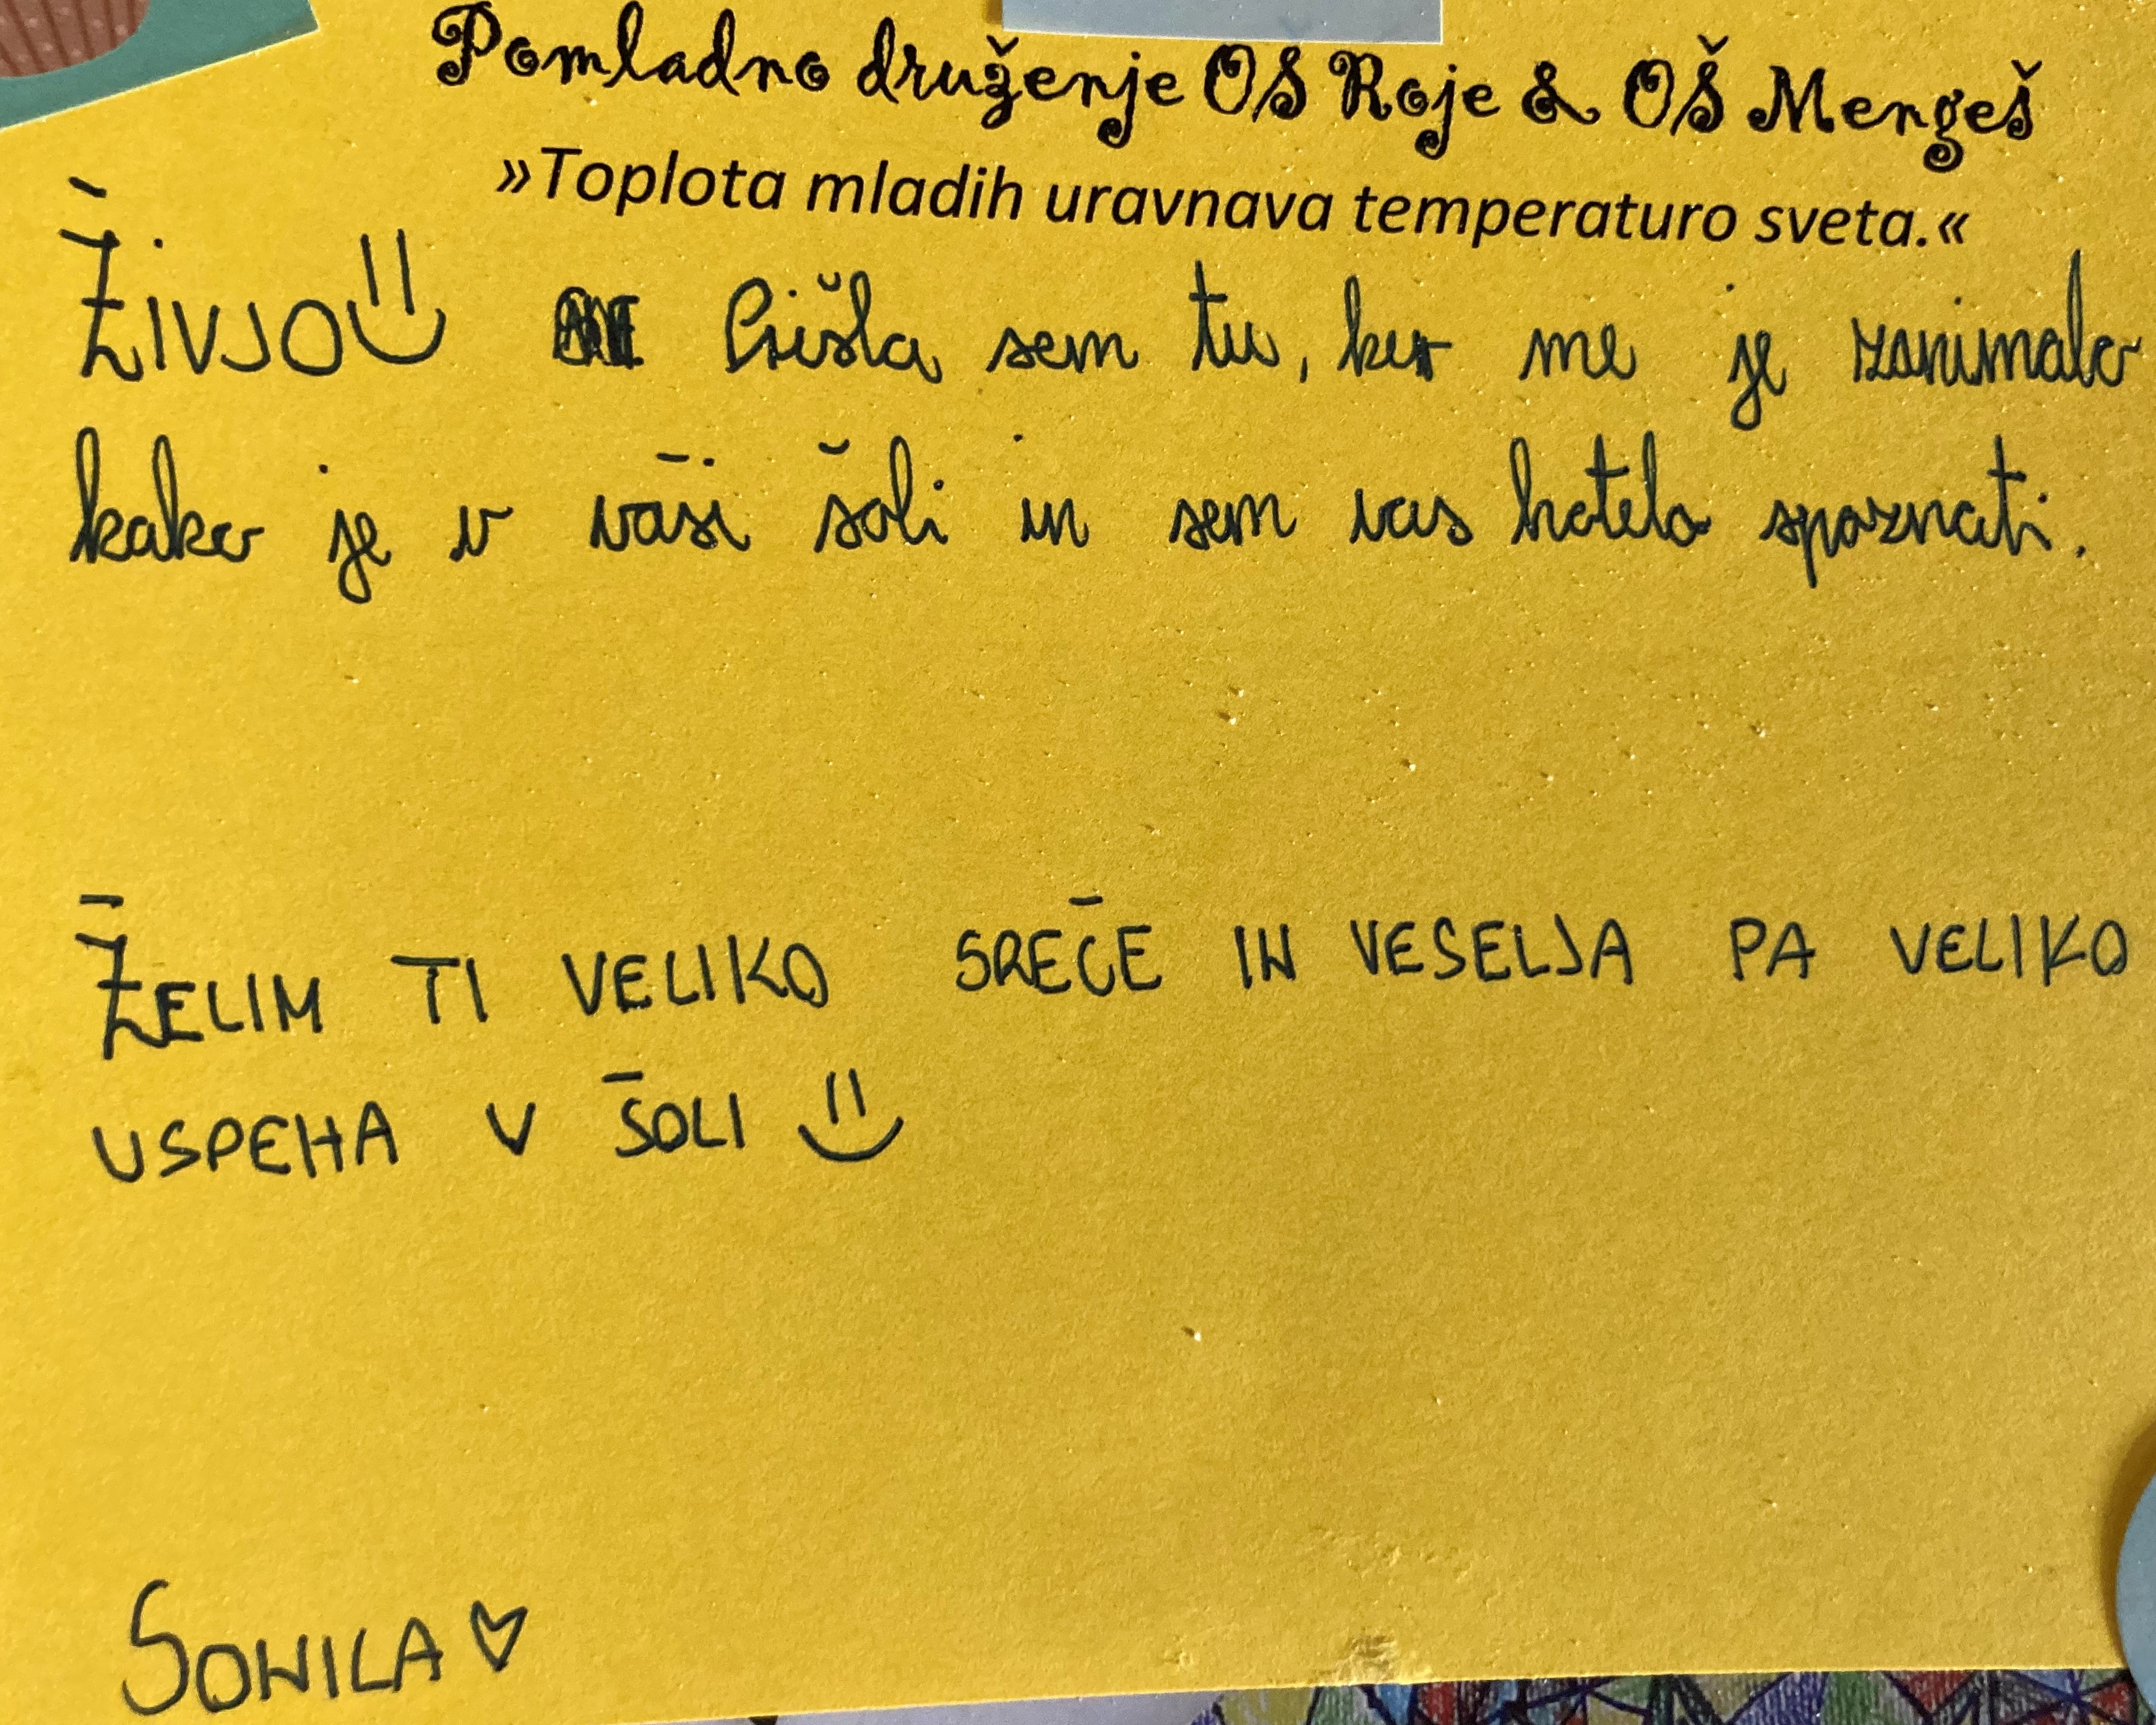 Pomladno druženje OŠ Roje & OŠ Mengeš
»Toplota mladih uravnava temperaturo sveta.«
Živjo Prišla sem tu, ker me je zanimalo
kako je v vaši šoli in sem vas hotela spoznati.
ŽELIM TI VELIKO SREČE IN VESELJA PA VELIKO
USPEHA V ŠOLI
SONILA